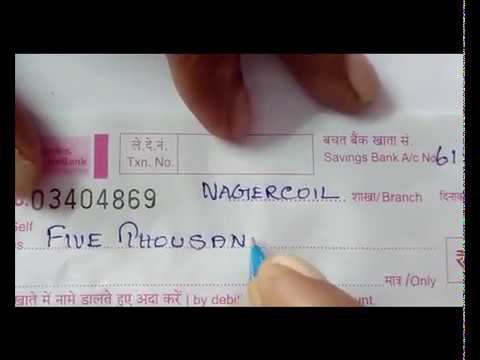 ले.दे.नं.
Txn. No.
बचत बैंक खाता सं.
Savings Bank A/c No. 61
03404869
NAGERCOIL शाखा/Branch
Self
FIVE THOUSAN
मात्र /Only
खाते में नामे डालते हुए अदा करें | by debit